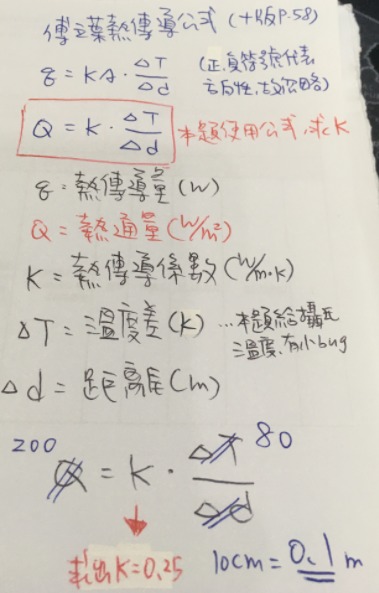 傅立葉熱傳導公式 (十版P.58)
q = KA · ΔT/Δd (正,負符號代表
方向性,故忽略)
Q = K · ΔT/Δd 本題使用公式,求K
q = 熱傳導量(W)
Q = 熱通量(W/m²)
K = 熱傳導係數(W/m·k)
ΔT = 溫度差(K) …本題給攝氏
溫度,有小bug
Δd = 距離(m)
200 80
Q = K · ΔT/Δd
求出K=0.25 10cm = 0.1 m